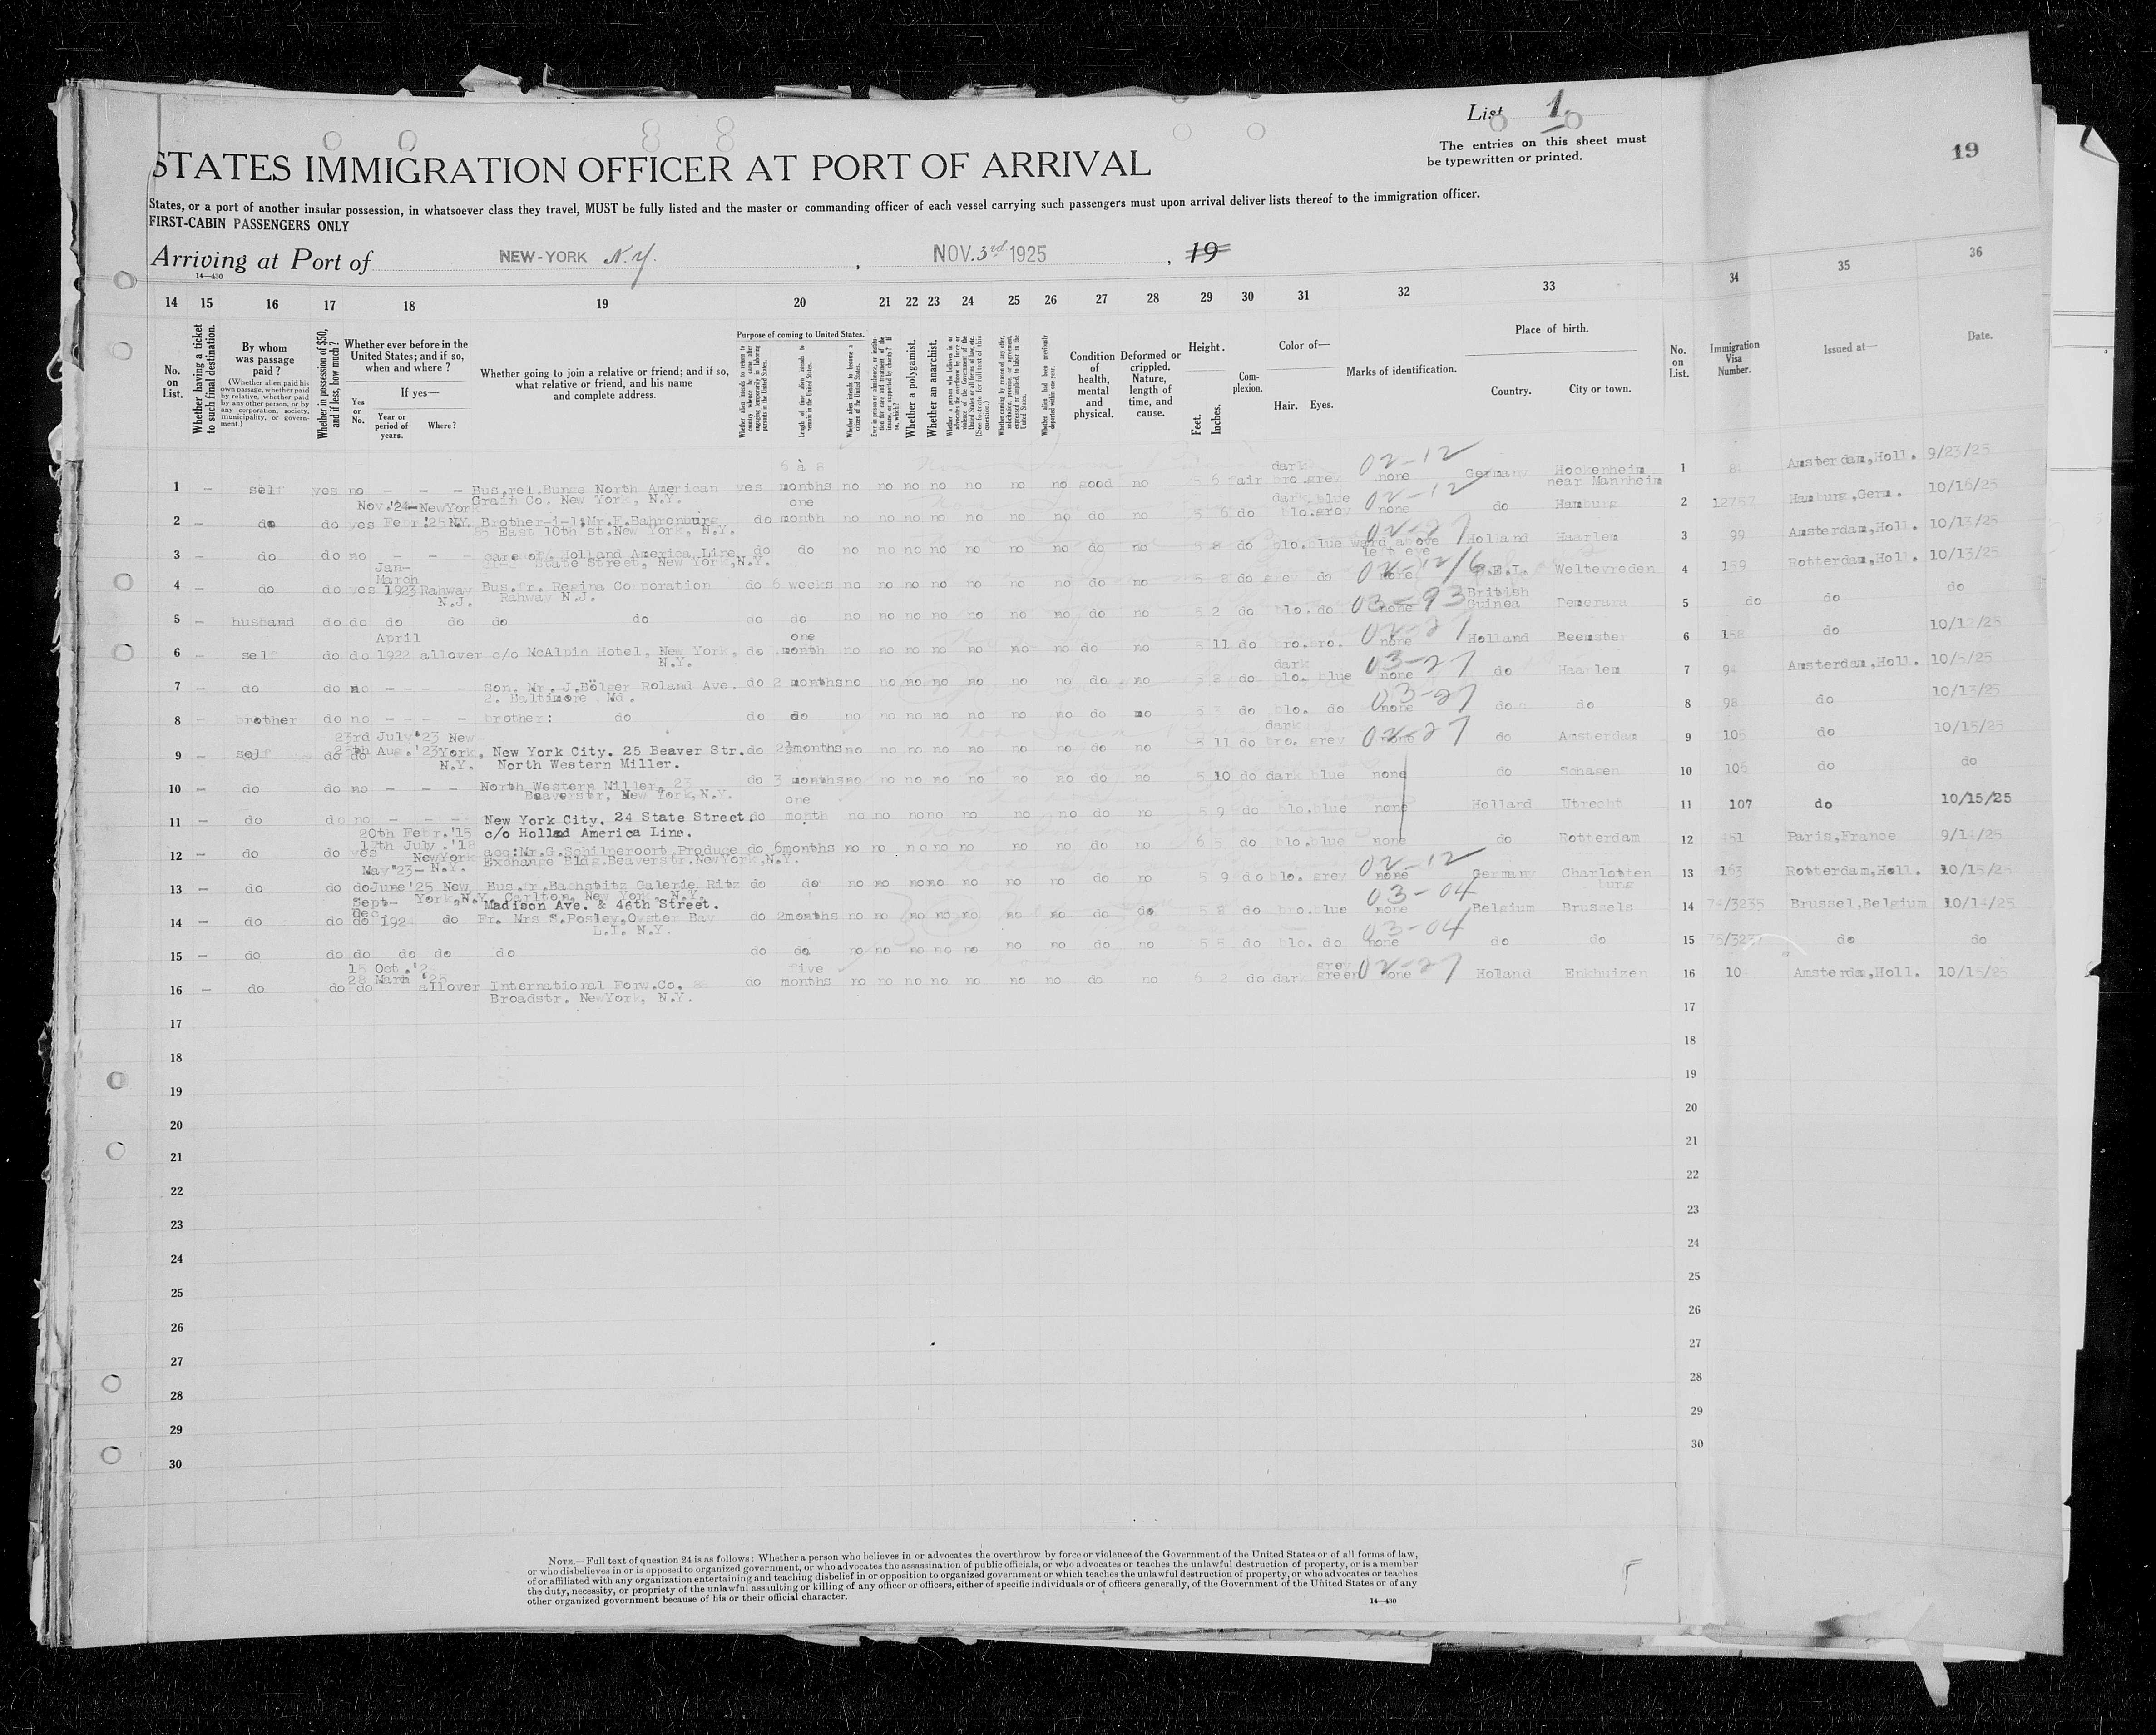 List 1
The entries on this sheet must
be typewritten or printed.
19
STATES IMMIGRATION OFFICER AT PORT OF ARRIVAL
States, or a port of another insular possession, in whatsoever class they travel, MUST be fully listed and the master or commanding officer of each vessel carrying such passengers must upon arrival deliver lists thereof to the immigration officer.
FIRST-CABIN PASSENGERS ONLY
Arriving at Port of NEW-YORK N.Y. , NOV. 3rd 1925 , 19
14—430
14 15 16 17 18 19 20 21 22 23 24 25 26 27 28 29 30 31 32 33 34 35 36
No. on List.
Whether having a ticket to such final destination.
By whom was passage paid?
(Whether alien paid his own passage, whether paid by relative, whether paid by any other person, or by any corporation, society, municipality, or government.)
Whether in possession of $50, and if less, how much?
Whether ever before in the United States; and if so, when and where?
Yes or No.
If yes—
Year or period of years.
Where?
Whether going to join a relative or friend; and if so, what relative or friend, and his name and complete address.
Purpose of coming to United States.
Whether alien intends to return to country whence he came after engaging temporarily in laboring pursuits in the United States.
Length of time alien intends to remain in the United States.
Whether alien intends to become a citizen of the United States.
Whether a polygamist.
Whether an anarchist.
Whether alien had been previously deported within one year.
Condition of health, mental and physical.
Deformed or crippled. Nature, length of time, and cause.
Height.
Feet. Inches.
Complexion.
Color of—
Hair. Eyes.
Marks of identification.
Place of birth.
Country. City or town.
No. on List.
Immigration Visa Number.
Issued at—
Date.
1 — self yes no — — — Bus.rel.Bunge North American Grain Co. New York, N.Y. yes 6 à 8 months no no no no no no no good no 5 6 fair dark bro. grey 02-12 none Germany Hockenheim near Mannheim 1 Amsterdam,Holl. 9/23/25
2 — do do yes Nov.'24— Febr.'25 NewYork N.Y. Brother-i-l:Mr.F.Bahrenburg 85 East 10th st.New York, N.Y. do one month no no no no no no no do no 5 6 do dark blo. blue grey 02-12 none do Hamburg 2 Hamburg,Germ. 10/16/25
3 — do do no — — — care of. Holland America Line State Street, New York,N.Y. do do no no no no no no no do no 5 8 do blo. 02-27 left eye Holland Haarlem 3 99 Amsterdam,Holl. 10/13/25
4 — do do yes Jan- March 1923 Rahway N.J. Bus.fr. Regina Corporation Rahway N.J. do 6 weeks no no no no no no no do no 5 8 do grey do 02-12/6 none D.E.I. Weltevreden 4 159 Rotterdam,Holl. 10/13/25
5 — husband do do do do do do do do no no no no no no no do no 5 2 do blo. do 03-93 none British Guinea Demerara 5 do do do
6 — self do do April 1922 allover c/o McAlpin Hotel, New York, N.Y. do one month no no no no no no no do no 5 11 do bro. bro. 02-27 none Holland Beemster 6 158 do 10/12/25
7 — do do no — — — — Son. Mr. J.Bölger Roland Ave. 2. Baltimore Md. do 2 months no no no no no no no do no 5 8 do dark blo. blue 03-27 none do Haarlem 7 94 Amsterdam,Holl. 10/5/25
8 — brother do no — — — — brother: do do do no no no no no no no do no 5 5 do blo. do 03-27 none do do 8 98 do 10/13/25
9 — self do do 23rd July'23 25th Aug.'23 New-York, N.Y. New York City. 25 Beaver Str. North Western Miller. do 2½months no no no no no no no do no 5 11 do dark bro. grey 02-27 none do Amsterdam 9 105 do 10/15/25
10 — do do no — — — North Western Miller, 23 Beaverstr, New York,N.Y. do 3 months no no no no no no no do no 5 10 do dark blue none do Schagen 10 106 do do
11 — do do no — — — New York City. 24 State Street. c/o Hollad America Line. do one month no no no no no no no do no 5 9 do blo. blue none Holland Utrecht 11 107 do 10/15/25
12 — do do yes 20th Febr.'15 17th July.'18 NewYork N.Y. acq:Mr.G.Schilperoort,Produce Exchange Bldg.Beaverstr.NewYork,N.Y. do 6months no no no no no no no do no 6 5 do blo. blue none do Rotterdam 12 Paris,France
13 — do do do May'23— June'25 New York,N.Y. Bus.fr.Bachstitz Galerie Ritz Carlton, New York, N.Y. Madison Ave. & 46th Street. do do no no no no no no no do no 5 9 do blo. grey 02-12 none Germany Charlottenburg 13 163 Rotterdam,Holl. 10/15/25
14 — do do do Sept— Dec. 1924 do Fr. Mrs S.Posley,Oyster Bay L.I. N.Y. do 2months no no no no no no no do do 5 8 do bro. blue 03-04 none Belgium Brussels 14 74/3235 Brussel,Belgium 10/14/25
15 — do do do do do do do do no no no no no no no do no 5 5 do blo. do 03-04 none do do 15 do do
16 — do do do 15 Oct. 28 March '25 allover International Forw.Co. Broadstr. NewYork, N.Y. do five months no no no no no no no do no 6 2 do dark grey green 02-27 none Holand Enkhuizen 16 10 Amsterdam,Holl. 10/15/25
17 17
18 18
19 19
20 20
21 21
22 22
23 23
24 24
25 25
26 26
27 27
28 28
29 29
30 30
NOTE.—Full text of question 24 is as follows: Whether a person who believes in or advocates the overthrow by force or violence of the Government of the United States or of all forms of law,
or who disbelieves in or is opposed to organized government, or who advocates the assassination of public officials, or who advocates or teaches the unlawful destruction of property, or is a member
of or affiliated with any organization entertaining and teaching disbelief in or opposition to organized government or which teaches the unlawful destruction of property, or who advocates or teaches
the duty, necessity, or propriety of the unlawful assaulting or killing of any officer or officers, either of specific individuals or of officers generally, of the Government of the United States or of any
other organized government because of his or their official character.
14—430